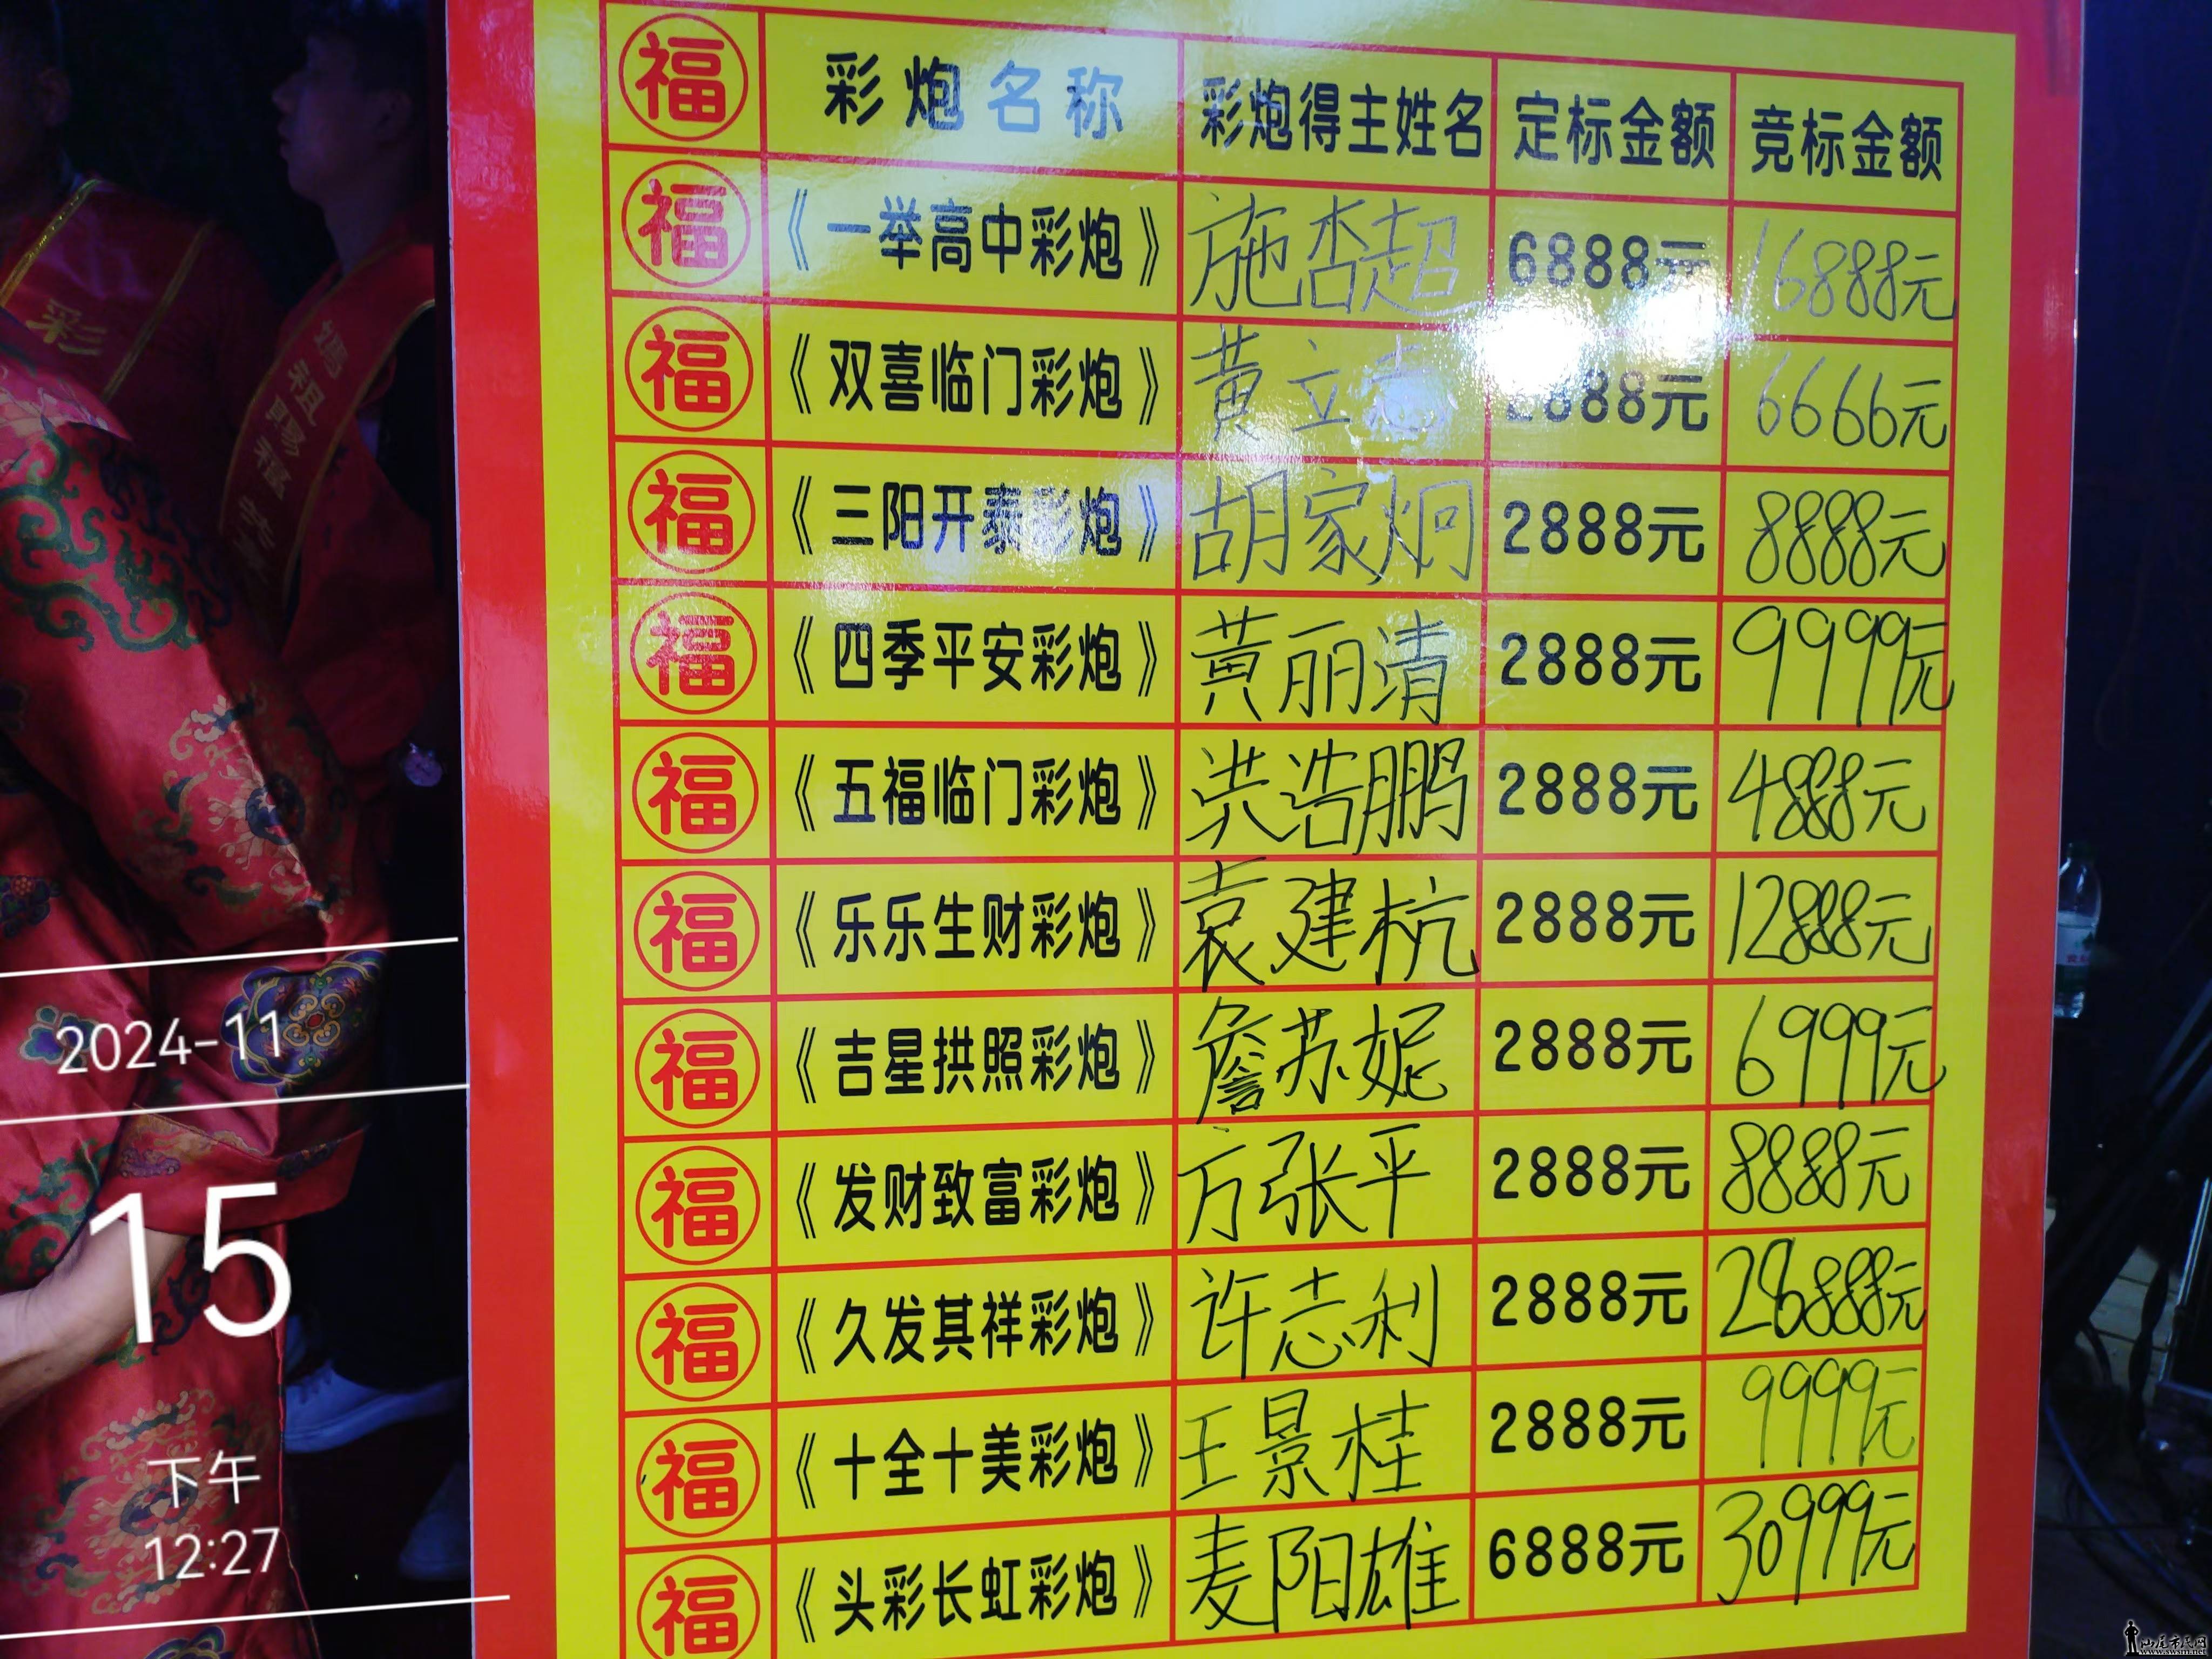 福 彩炮名称 彩炮得主姓名 定标金额 竞标金额
福 《一举高中彩炮》 施杏超 6888元 16888元
福 《双喜临门彩炮》 黄立志 2888元 6666元
福 《三阳开泰彩炮》 胡家炯 2888元 8888元
福 《四季平安彩炮》 黄丽清 2888元 9999元
福 《五福临门彩炮》 洪浩鹏 2888元 4888元
福 《乐乐生财彩炮》 袁建杭 2888元 12888元
福 《吉星拱照彩炮》 詹苏妮 2888元 6999元
福 《发财致富彩炮》 方张平 2888元 8888元
福 《久发其祥彩炮》 许志利 2888元 26888元
福 《十全十美彩炮》 王景桂 2888元 9999元
福 《头彩长虹彩炮》 麦阳雄 6888元 30999元
彩
妈祖首赐福
2024-11
15
下午
12:27
汕尾市民网
www.swsm.net